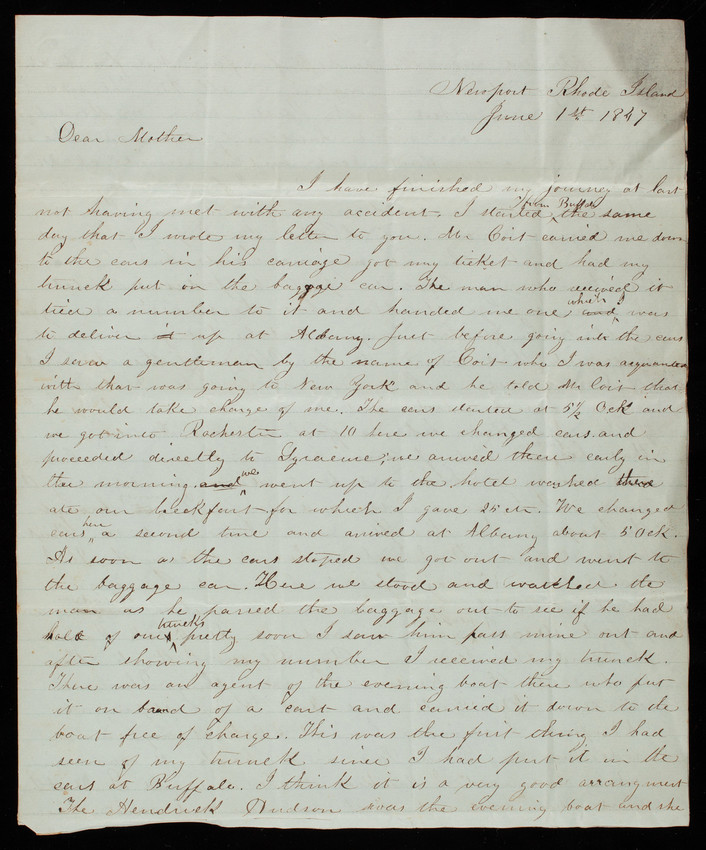 Newport Rhode Island
June 1st 1847
Dear Mother
I have finished my journey at last
not having met with any accident. I started from Buffalo the same
day that I wrote my letter to you. Mr Coit carried me down
to the cars in his carriage got my ticket and had my
trunck put on the baggage car. The man who received it
tied a number to it and handed me one and which I was
to deliver it up at Albany. Just before going into the cars
I saw a gentleman by the name of Coit who I was acquainted
with that was going to New York and he told Mr Coit that
he would take charge of me. The cars started at 5½ Ock and
we got into Rochester at 10 here we changed cars and
proceeded directly to Syracuse, we arrived there early in
the morning and we went up to the hotel washed there
ate our breckfast for which I gave 25 cts. We changed
cars here a second time and arrived at Albany about 5 Ock.
As soon as the cars stoped we got out and went to
the baggage car. Here we stood and watched the
man as he passed the baggage out to see if he had
hold of our truncks pretty soon I saw him pass mine out and
after showing my number I received my trunck.
There was an agent of the evening boat there who put
it on board of a cart and carried it down to the
boat free of charge. This was the first thing I had
seen of my trunck since I had put it in the
cars at Buffalo. I think it is a very good arrangment
The Hendrick Hudson was the evening boat and she